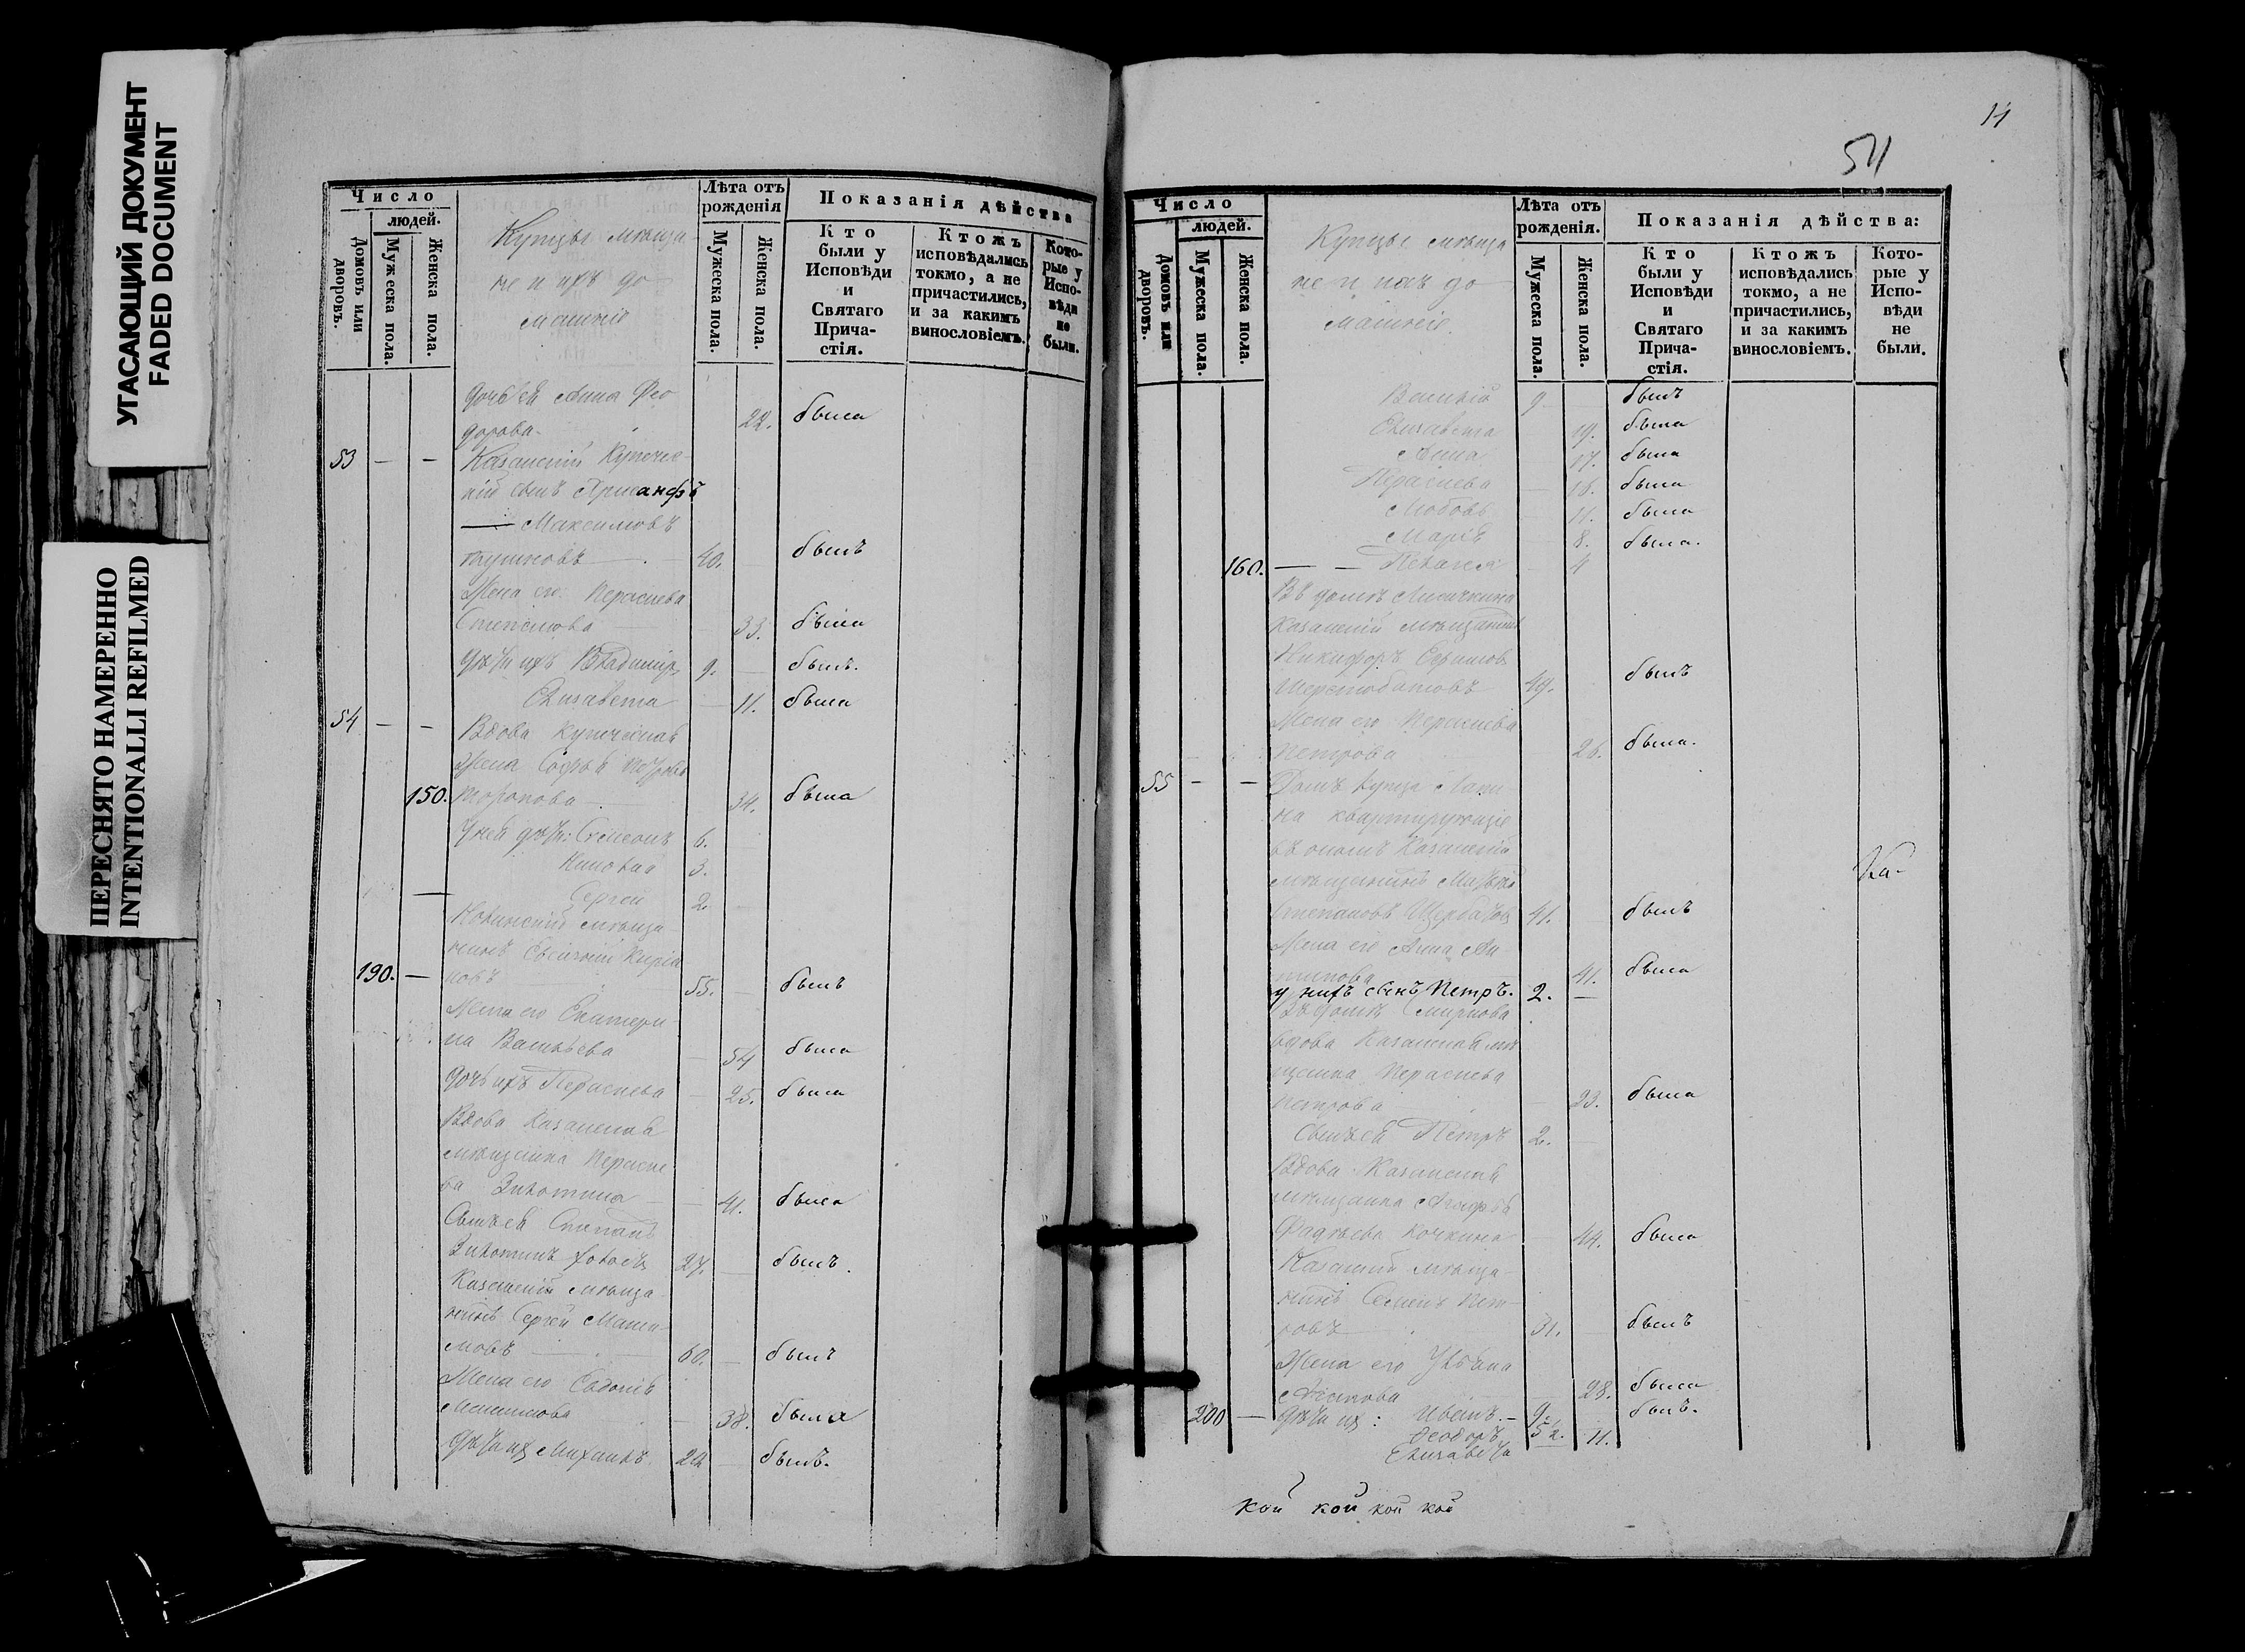 УГАСАЮЩИЙ ДОКУМЕНТ
FADED DOCUMENT
ПЕРЕСНЯТО НАМЕРЕННО
INTENTIONALLI REFILMED
Число
людей.
Домовъ или дворовъ.
Мужеска пола.
Женска пола.
Купцы мѣща
не и ихъ до
машніе
Лѣта отъ рожденія
Мужеска пола.
Женска пола.
Показанія дѣйства
Кто были у Исповѣди и Святаго Причастія.
Ктожъ исповѣдались токмо, а не причастились, и за какимъ винословіемъ.
Которые у Исповѣди не были.
дочь ея Анна Фео
дорова 22. была
53 — — Казанскій Купечес
кій сынъ Хрисанфъ
— Максимовъ
40. былъ
Жена его Параскева
Степанова 33. была
дѣти ихъ Владимиръ 9. — былъ.
Елизавета — 11. была
54 — — Вдова купеческая
Жена Софья Петрова
150. Торопова 34. была
У ней дѣти: Симеонъ 6.
3.
Сергей 2.
мѣща
нинъ Евгений Кирил
190. — ловъ 55. — былъ
Жена его Екатери
на Васильева — 54 была
дочь ихъ Параскева — 25. была
Вдова Казанская
мѣщанка Параске
ва Зилотина — 41. была
Сынъ ея Степанъ
Зилотинъ холостъ 27. — былъ.
Казанскій мѣща
нинъ Сергей Макси
мовъ — 60. — былъ
Жена его Евдокія
Максимова — 38. была
Дѣти ихъ Михаилъ 22 — былъ.
14
54
Число
людей.
Домовъ или дворовъ.
Мужеска пола.
Женска пола.
Купцы мѣща
не и ихъ до
машніе.
Лѣта отъ рожденія.
Мужеска пола.
Женска пола.
Показанія дѣйства:
Кто были у Исповѣди и Святаго Причастія.
Ктожъ исповѣдались токмо, а не причастились, и за какимъ винословіемъ.
Которые у Исповѣди не были.
Василій 9 былъ
Елизавета 19. была
Анна 17. была
Параскева — 16. была
Любовь — 11. была
Марія — 8. была.
160. — — Пелагея — 4
Въ домѣ Лисичкина
Казанскій мѣщанинъ
Никифоръ
Шерстобитовъ 49. былъ
Жена его Параскева
Петрова 26. была.
55 — — Домъ купца Лапи
на квартирующіе
въ ономъ Казанскій
мѣщанинъ Матвѣй
Степановъ Щербаковъ 41. — былъ
Жена его Анна Ан
типова 41. была
у нихъ сынъ Петръ. 2. —
Въ домѣ Смирнова
вдова Казанская мѣ
щанка Параскева
Петрова — 23. была
Сынъ ея Петръ 2. —
Вдова Казанская
мѣщанка
Фадѣева Кочкина 44. была
Казанскій мѣща
нинъ Семенъ Пет
ровъ 31. — былъ
Жена его Ульяна
— 28. была
200 — Дѣти ихъ: Иванъ. — 9. былъ.
Феодоръ
Елизавета 11.
кой кой кой кой